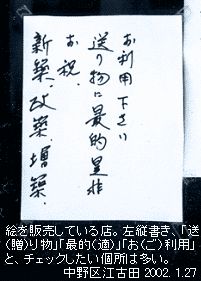 新築、改築、増築、
お祝、
送り物に最的是非
お利用下さい
絵を販売している店。左縦書き、「送
(贈)り物」「最的(適)」「お(ご)利用」
と、チェックしたい個所は多い。
中野区江古田 2002.1.27